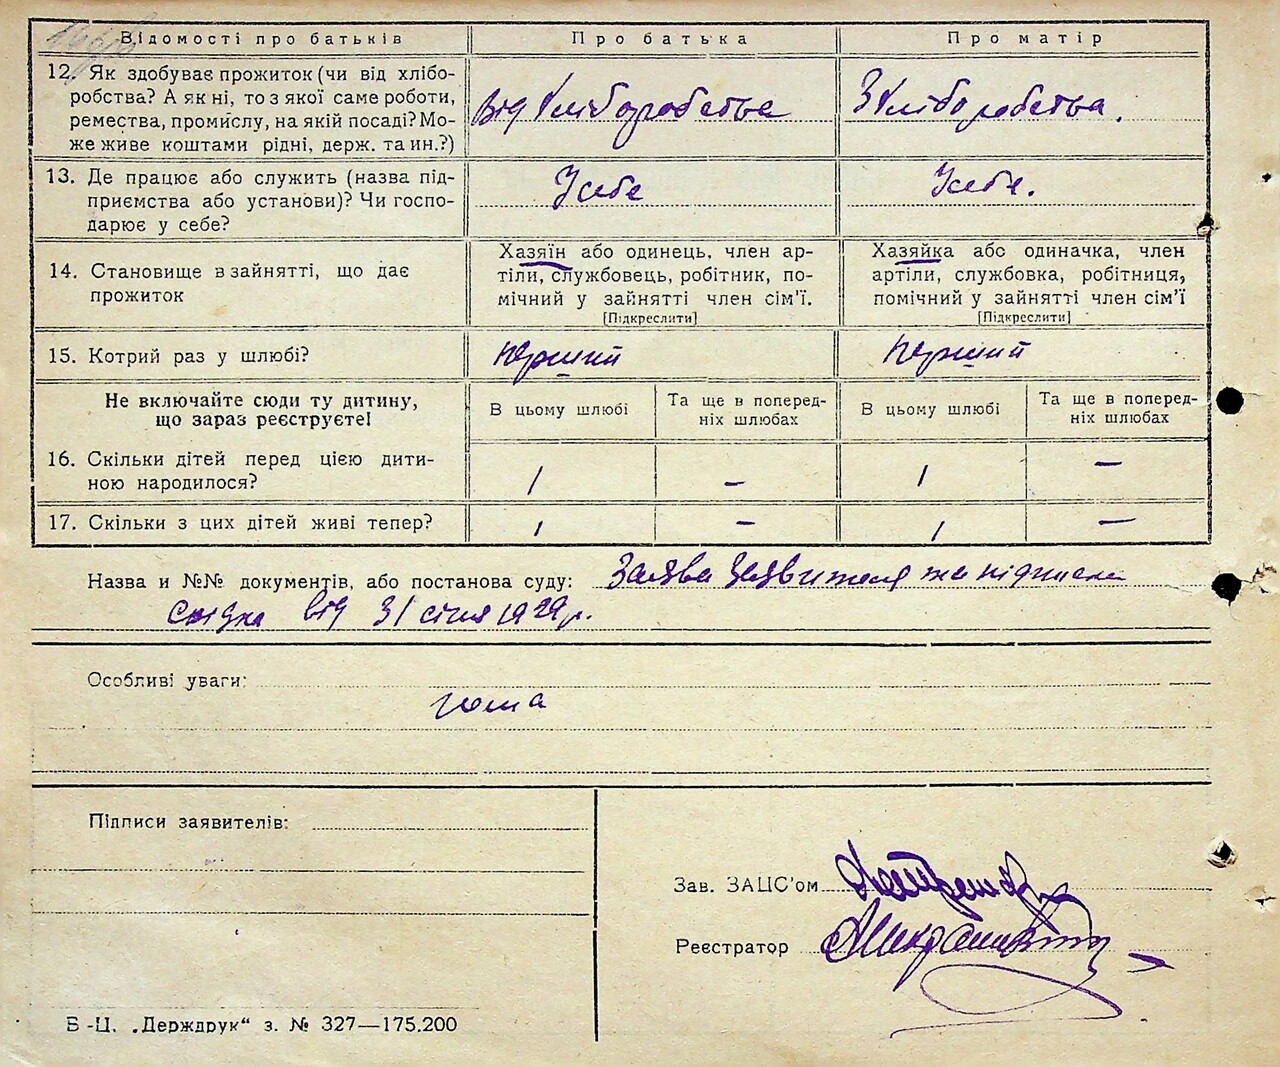 Відомості про батьків
Про батька
Про матір
12. Як здобуває прожиток (чи від хлібо-
робства? А як ні, то з якої саме роботи,
ремества, промислу, на якій посаді? Мо-
же живе коштами рідні, держ. та ин.?)
від хліборобства
З хліборобства.
13. Де працює або служить (назва під-
приємства або установи)? Чи госпо-
дарює у себе?
У себе
У себе.
14. Становище в зайнятті, що дає
прожиток
Хазяїн або одинець, член ар-
тіли, службовець, робітник, по-
мічний у зайнятті член сім'ї.
[Підкреслити]
Хазяйка або одиначка, член
артіли, службовка, робітниця,
помічний у зайнятті член сім'ї
[Підкреслити]
15. Котрий раз у шлюбі?
перший
перший
Не включайте сюди ту дитину,
що зараз реєструєте!
В цьому шлюбі
Та ще в поперед-
ніх шлюбах
В цьому шлюбі
Та ще в поперед-
ніх шлюбах
16. Скільки дітей перед цією дити-
ною народилося?
1
–
1
–
17. Скільки з цих дітей живі тепер?
1
–
1
–
Назва и №№ документів, або постанова суду: Заява заявителя та підписка
свідка від 31 січня 1929 р.
Особливі уваги:
Підписи заявителів:
Зав. ЗАЦС'ом
Реєстратор
Б-Ц. „Держдрук“ з. № 327—175.200